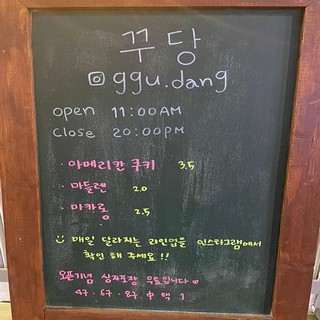 꾸당
@ggu.dang
open 11:00AM
close 20:00PM
· 아메리칸 쿠키 3.5
· 마들렌 2.0
· 마카롱 2.5
매일 달라지는 라인업을 인스타그램에서
확인 해 주세요!!
오픈기념 상자포장 무료입니다
4구 · 6구 · 8구 中 택 1